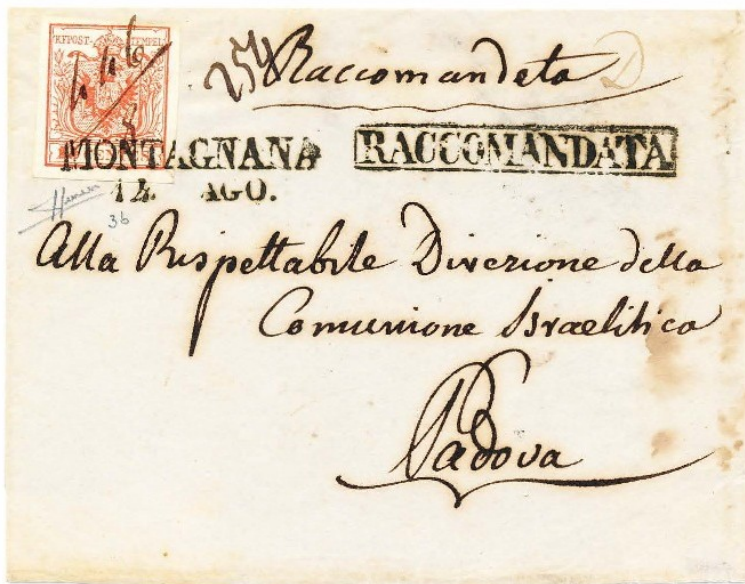 KFPOST- STEMPEL
254 Raccomandata
MONTAGNANA RACCOMANDATA
14 AGO.
36
Alla Rispettabile Direzione della
Comunione Israelitica
Padova